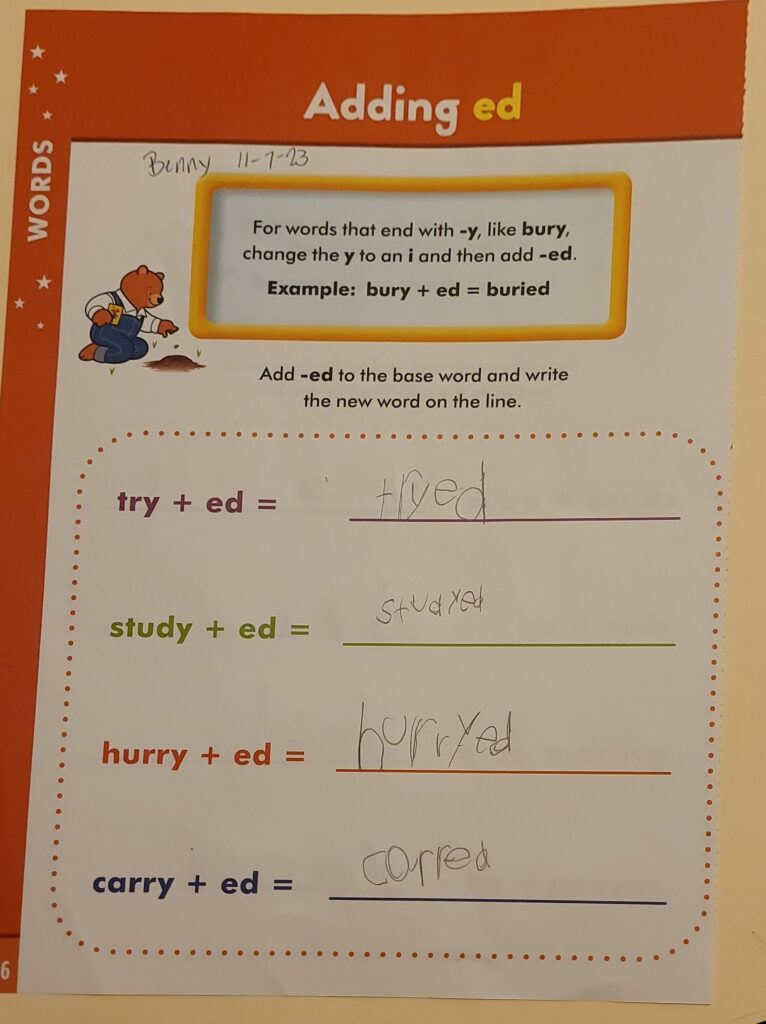 Adding ed
WORDS
Benny 11-7-23
For words that end with -y, like bury,
change the y to an i and then add -ed.
Example: bury + ed = buried
Add -ed to the base word and write
the new word on the line.
try + ed = tryed
study + ed = studyed
hurry + ed = hurryed
carry + ed = carred
6